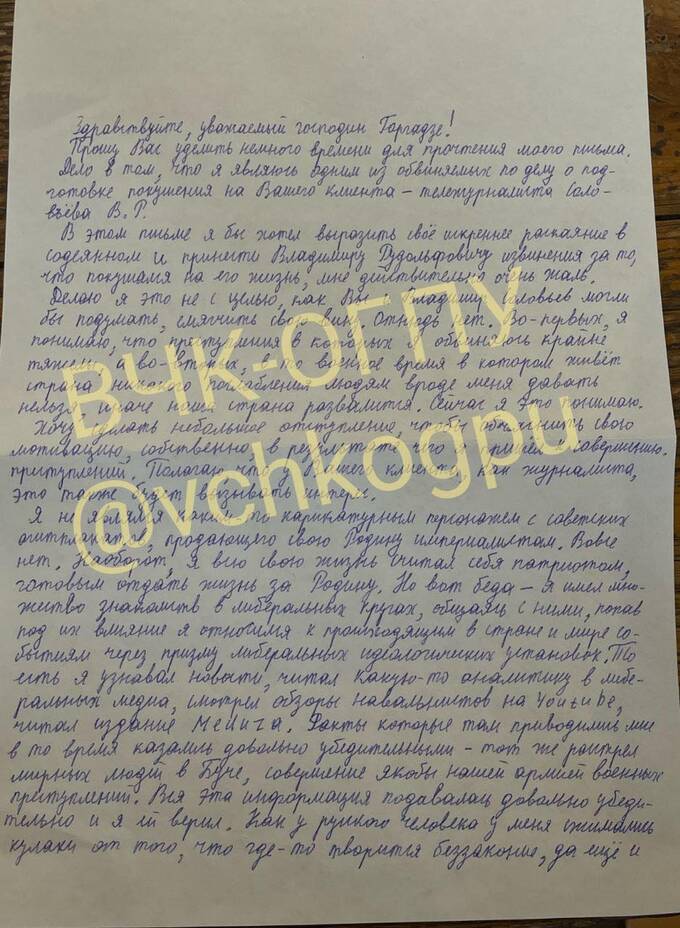 Здравствуйте, уважаемый господин Гаргадзе!
Прошу Вас уделить немного времени для прочтения моего письма.
Дело в том, что я являюсь одним из обвиняемых по делу о под-
готовке покушения на Вашего клиента – тележурналиста Соло-
вьёва В.Р.
В этом письме я бы хотел выразить своё искреннее раскаяние в
содеянном и принести Владимиру Рудольфовичу извинения за то,
что покушался на его жизнь, мне действительно очень жаль.
Делаю я это не с целью, как Вы и Владимир Соловьев могли
бы подумать, смягчить свою вину. Отнюдь нет. Во-первых, я
понимаю, что преступления в которых я обвиняюсь крайне
тяжелы, а во-вторых, в то военное время в котором живёт
страна никакого послабления людям вроде меня давать
нельзя, иначе наша страна развалится. Сейчас я это понимаю.
Хочу сделать небольшое отступление, чтобы объяснить свою
мотивацию, собственно, в результате чего я пришёл к совершению
приступлений. Полагаю что у Вашего клиента, как журналиста,
это также будет вызывать интерес.
Я не являлся каким-то карикатурным персонажем с советских
агитплакатов, продающего свою Родину империалистам. Вовсе
нет. Наоборот, я всю свою жизнь считал себя патриотом,
готовым отдать жизнь за Родину. Но вот беда – я имел мно-
жество знакомств в либеральных кругах, общаясь с ними, попав
под их влияние я относился к происходящим в стране и мире со-
бытиям через призму либеральных идеологических установок. То
есть я узнавал новости, читал какую-то аналитику в либе-
ральных медиа, смотрел обзоры навальнистов на Youtube,
читал издание Медуза. Факты которые там приводились мне
в то время казались довольно убедительными – тот же расстрел
мирных людей в Буче, совершение якобы нашей армией военных
приступлений. Вся эта информация подавалась довольно убеди-
тельно и я ей верил. Как у русского человека у меня сжимались
кулаки от того, что где-то творится беззаконие, да ещё и
ВЧК-ОГПУ
@vchkogpu